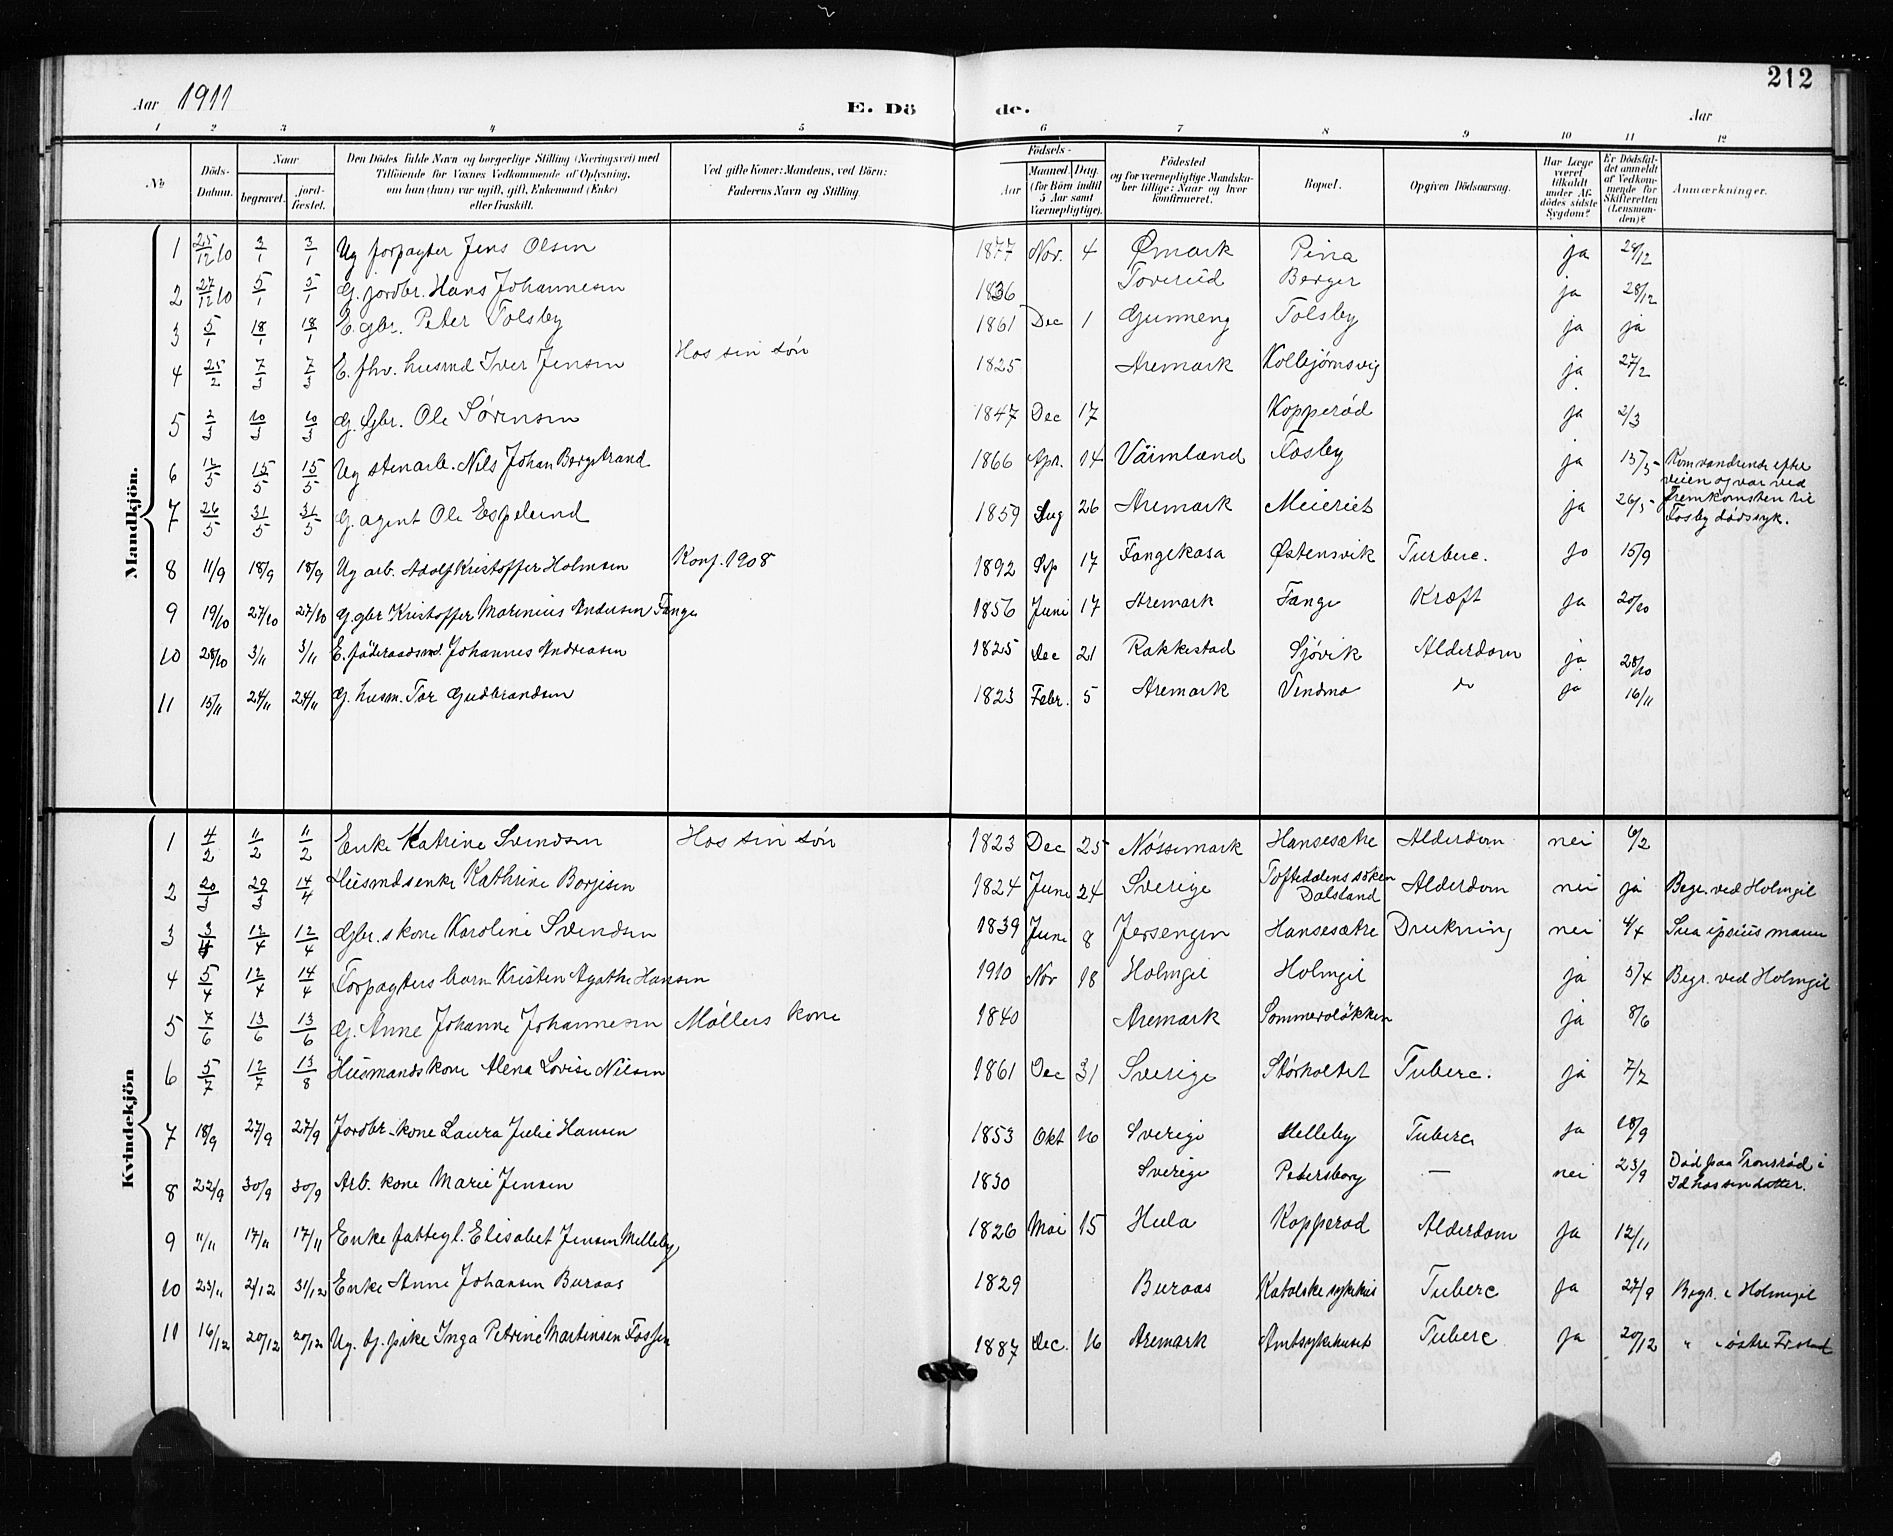 212
Aar 1911 E. Dö de. Aar
1 2 3 4 5 6 7 8 9 10 11 12
No. Döds-Datum. Naar begravet. jord-fæstet. Den Dödes fulde Navn og borgerlige Stilling (Næringsvei) med Tilföiende for Voxnes Vedkommende af Oplysning, om han (hun) var ugift, gift, Enkemand (Enke) eller fraskilt. Ved gifte Koner: Mandens, ved Börn: Faderens Navn og Stilling. Födsels- Aar Maaned. Dag. (for Börn indtil 5 Aar samt Værnepligtige). Födested og for værnepligtige Mandskaber tillige: Naar og hvor konfirmeret. Bopæl. Opgiven Dödsaarsag. Har Læge været tilkaldt under Afdödes sidste Sygdom? Er Dödsfaldet anmeldt af Vedkommende for Skifteretten (Lensmanden)? Anmærkninger.
Mandkjön.
1 25/12 10 3/1 3/1 Ug forpagter Jens Olsen 1877 Nov. 4 Ømark Pina ja 28/12
2 27/12 10 5/1 5/1 G. jordbr. Hans Johannesen 1836 Toverud Berger ja 28/12
3 5/1 18/1 18/1 E. gbr. Peter Tolsby 1861 Dec 1 Gunneng Tolsby ja ja
4 25/2 7/3 7/3 E. fhv. husmd Iver Jensen Hos sin søn 1825 Aremark Kolbjørnsvig ja 27/2
5 2/3 10/3 10/3 G. Gbr. Ole Sørensen 1847 Dec 17 Kopperød ja 2/3
6 12/5 15/5 15/5 Ug stenarb. Nils Johan Bergstrand 1866 Apr. 14 Värmland Fosby ja 15/5 Kom vandrende efter veien og var ved fremkomsten til Fosby dødssyk.
7 26/5 31/5 31/5 G. agent Ole Espelund 1859 Aug 26 Aremark Meieriet ja 26/5
8 11/9 18/9 18/9 Ug arb. Adolf Kristoffer Holmsen Konf. 1908 1892 Sep 17 Fangekasa Østensvik Turberc. ja 15/9
9 19/10 27/10 27/10 G. gbr Kristoffer Marenius Andersen Fange 1856 Juni 17 Aremark Fange Kræft ja 20/10
10 28/10 3/11 3/11 E. föderaadsmd. Johannes Andreasen 1825 Dec 21 Rakkestad Sjøvik Alderdom ja 28/10
11 15/11 24/11 24/11 G. husm. Tor Gudbrandsen 1823 Febr. 5 Aremark Vindmo do ja 16/11
Kvindekjön
1 4/2 11/2 11/2 Enke Katrine Svendsen Hos sin søn 1823 Dec 25 Nøssemark Hansesætre Alderdom nei 6/2
2 20/3 29/3 14/4 Husmdsenke Kathrine Borjesen 1824 June 24 Sverige Toftedalens soken Dalsland Alderdom nei ja Begr. ved Holmgil
3 3/4 12/4 12/4 Gbr.s kone Karoline Svendsen 1839 June 8 Jersengen Hansesætre Drukning nei 4/4 Sua ipsius manu
4 5/4 12/4 14/4 Forpagters barn Kristen Agathe Hansen 1910 Nov 18 Holmgil Holmgil ja 5/4 Begr. ved Holmgil
5 7/6 13/6 13/6 G. Anne Johanne Johannesen Møllers kone 1840 Aremark Sommerøløkken ja 8/6
6 5/7 12/7 13/8 Husmands kone Alena Lovise Nilsen 1861 Dec 31 Sverige Størholtet Tuberc. ja 7/7
7 18/9 27/9 27/9 Jordbr.-kone Laura Julie Hansen 1853 Okt 16 Sverige Melleby Tuberc ja 18/9
8 22/9 30/9 30/9 Arb. kone Marie Jensen 1830 Sverige Petersborg — nei 23/9 Død paa Tronsrød i Id hos sin datter.
9 11/11 17/11 17/11 Enke fattigl. Elisabet Jensen Melleby 1826 Mai 15 Hula Kopperød Alderdom ja 12/11
10 23/11 2/12 31/12 Enke Anne Johansen Buraas 1829 Buraas Katolske sykehus Tuberc ja 27/9 Begr. i Holmgil
11 16/12 20/12 20/12 Ug. tj. pike Inga Petrine Martinsen Fossen 1887 Dec. 16 Aremark Amtsykehuset Tuberc ja 20/12 " i østre Fr.stad